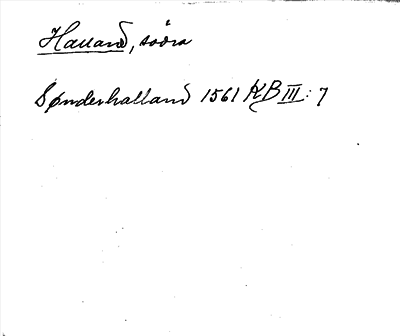 Halland, södra
Sønderhalland 1561 KB III: 7